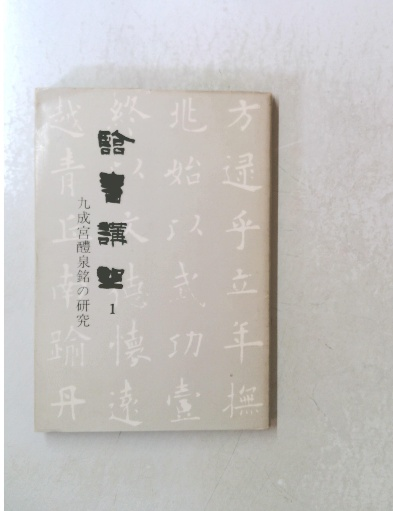 方逮乎立年撫
兆始以武功壹
終以文德懷遠
越青丘南踰丹
臨書講坐 1
九成宮醴泉銘の研究